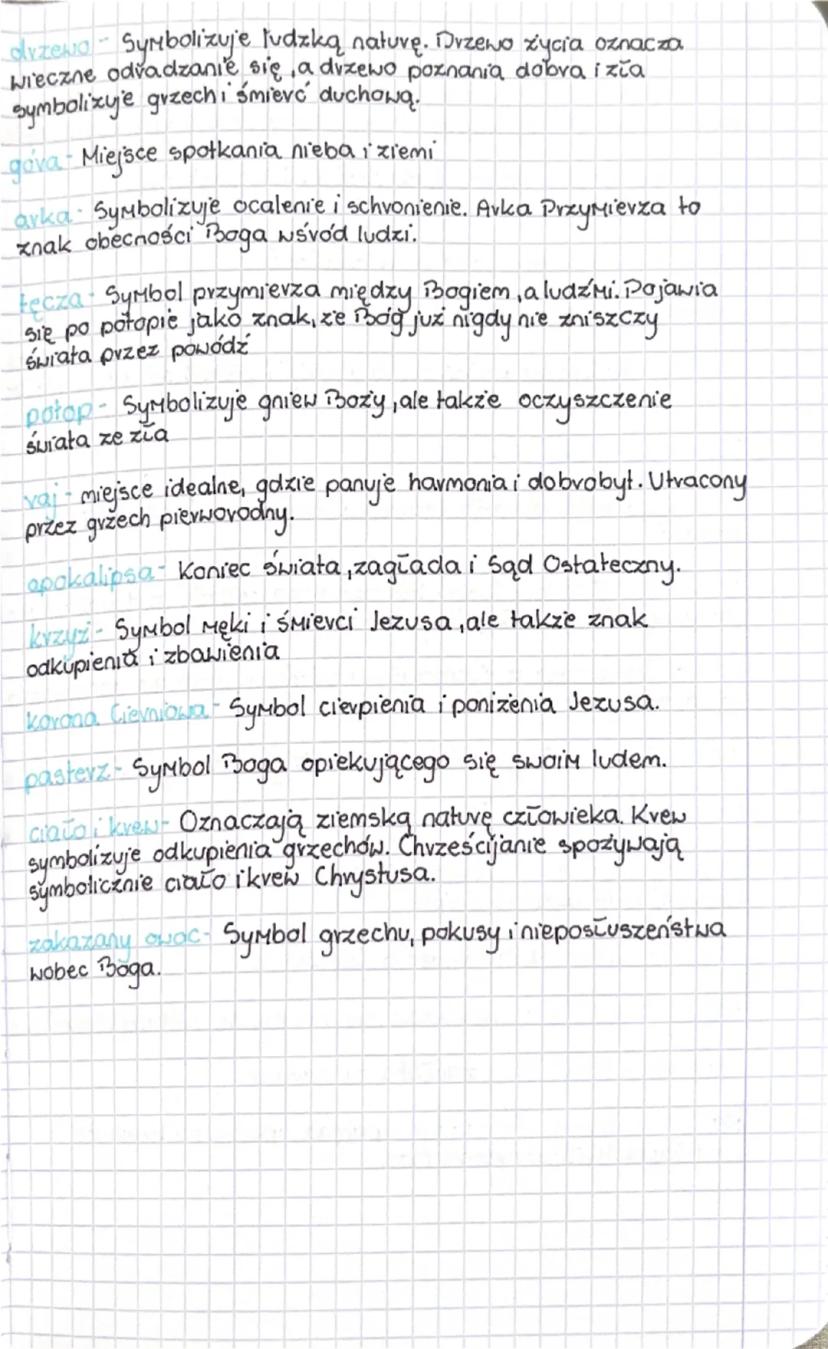 drzewo - Symbolizuje ludzką naturę. Drzewo życia oznacza
wieczne odradzanie się, a drzewo poznania dobra i zła
symbolizuje grzech i śmierć duchową.
góra - Miejsce spotkania nieba i ziemi
arka - Symbolizuje ocalenie i schronienie. Arka Przymierza to
znak obecności Boga wśród ludzi.
tęcza - Symbol przymierza między Bogiem, a ludźmi. Pojawia
się po potopie jako znak, że Bóg już nigdy nie zniszczy
świata przez powódź
potop - Symbolizuje gniew Boży, ale także oczyszczenie
świata ze zła
raj - miejsce idealne, gdzie panuje harmonia i dobrobyt. Utracony
przez grzech pierworodny.
apokalipsa - Koniec świata, zagłada i Sąd Ostateczny.
krzyż - Symbol męki i śmierci Jezusa, ale także znak
odkupienia i zbawienia
korona Cierniowa - Symbol cierpienia i poniżenia Jezusa.
pasterz - Symbol Boga opiekującego się swoim ludem.
ciało i krew - Oznaczają ziemską naturę człowieka. Krew
symbolizuje odkupienia grzechów. Chrześcijanie spożywają
symbolicznie ciało i krew Chrystusa.
zakazany owoc - Symbol grzechu, pokusy i nieposłuszeństwa
wobec Boga.